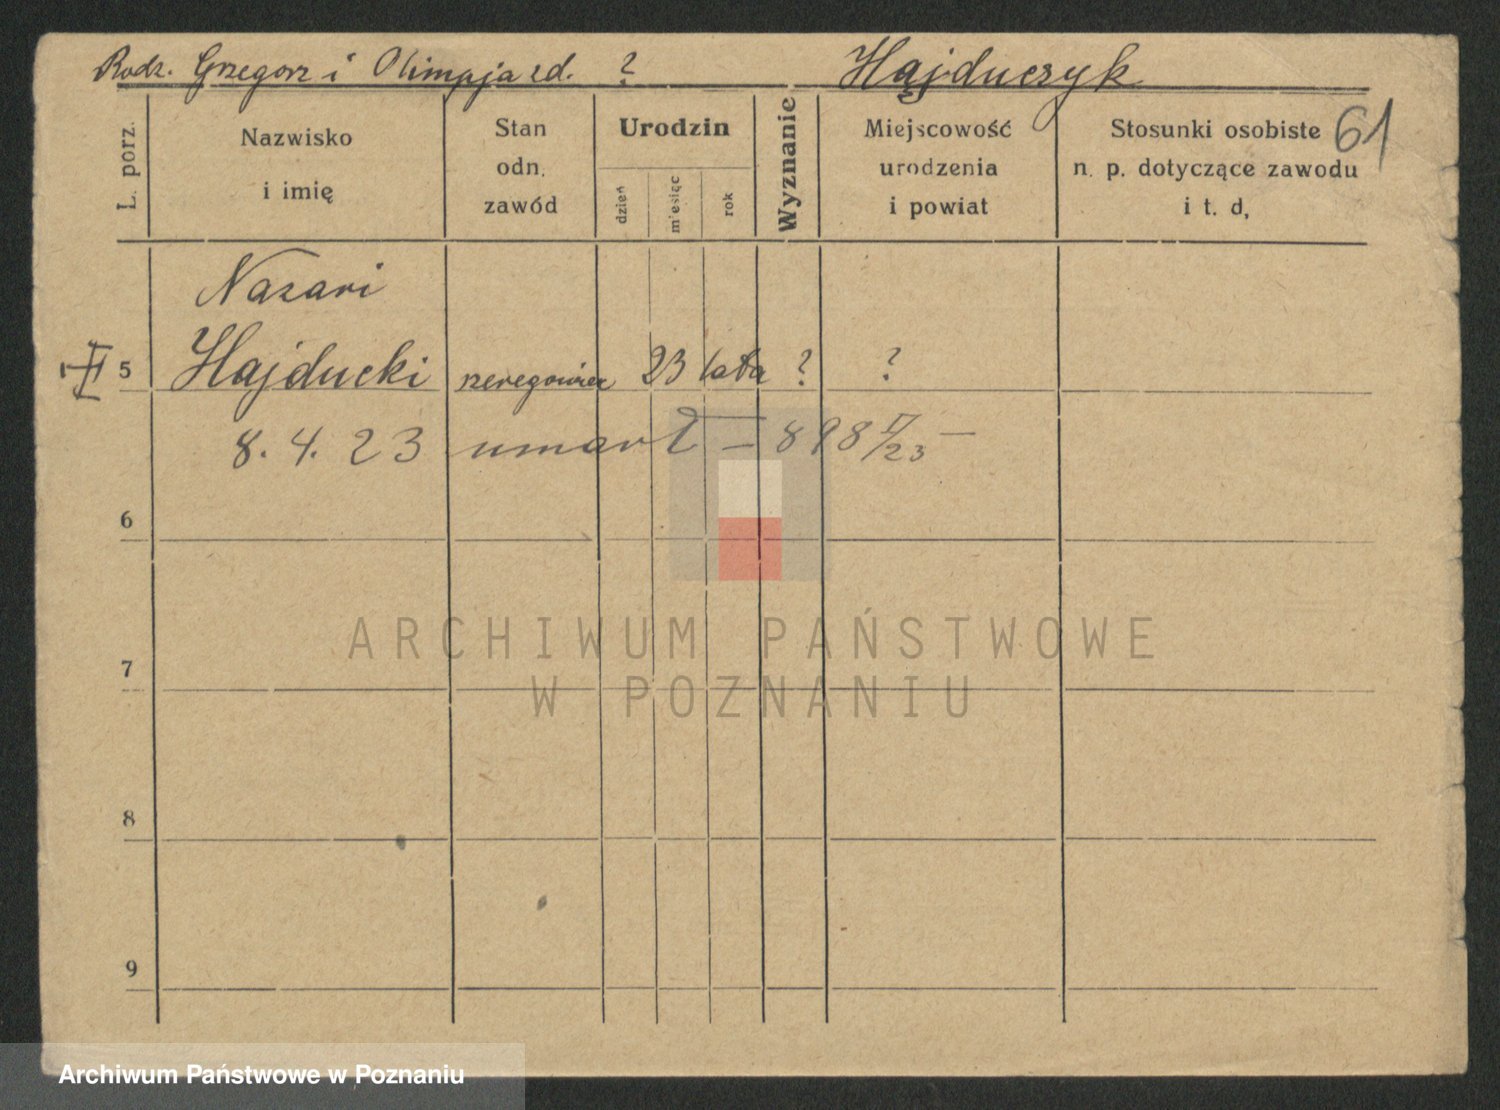 Rodz. Grzegorz i Olimpja zd. ? Hajduczyk
61
L. porz.
Nazwisko
i imię
Stan
odn.
zawód
Urodzin
dzień
miesiąc
rok
Wyznanie
Miejscowość
urodzenia
i powiat
Stosunki osobiste
n. p. dotyczące zawodu
i t. d,
Nazari
5 Hajducki szeregowiec 23 lata ? ?
8. 4. 23 umarł — 898 /23 —
6
7
8
9
ARCHIWUM PAŃSTWOWE
W POZNANIU
Archiwum Państwowe w Poznaniu